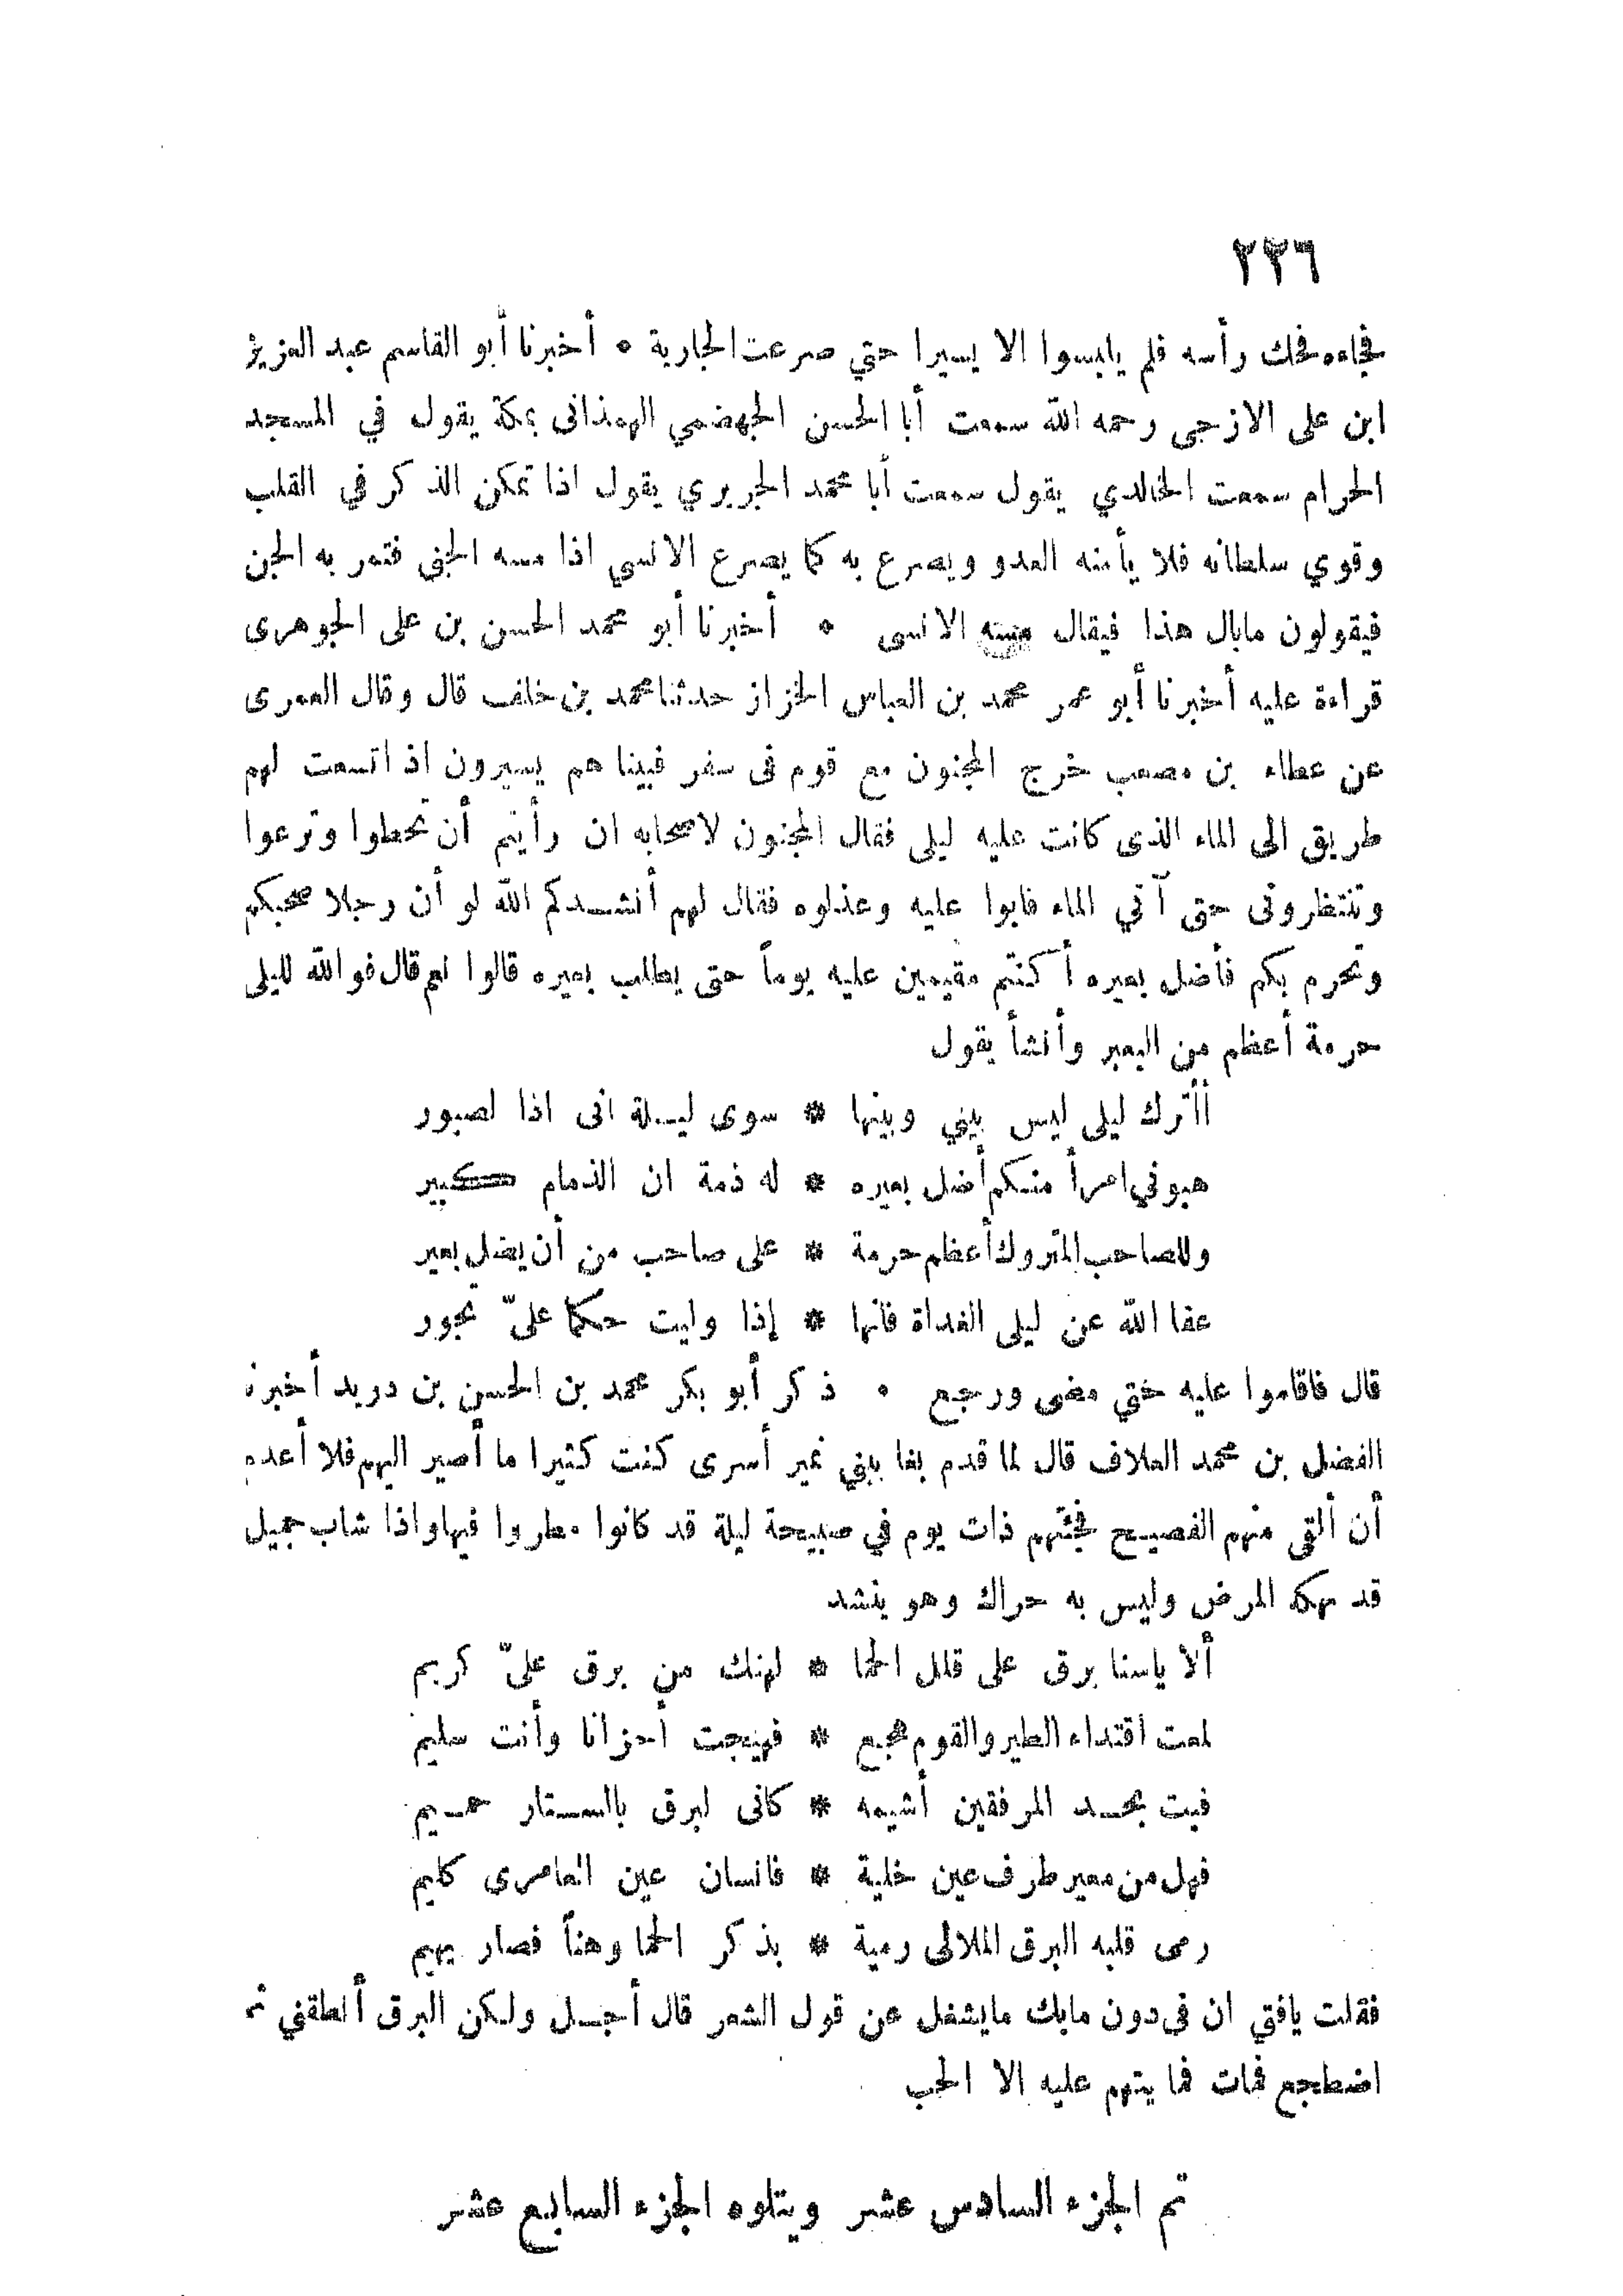 ٢٣٦
فجاءه فحك رأسه فلم يلبسوا الا يسيرا حتي صرعت الجارية • أخبرنا أبو القاسم عبد العزيز
ابن على الازجى رحمه الله سمعت أبا الحسن الجهضمي الهمذانى بمكة يقول في المسجد
الحرام سمعت الخالدي يقول سمعت أبا محمد الجريري يقول اذا تمكن الذكر في القلب
وقوي سلطانه فلا يأمنه العدو ويصرع به كما يصرع الانسي اذا مسه الجني فتمر به الجن
فيقولون مابال هذا فيقال مسه الانسى • أخبرنا أبو محمد الحسن بن على الجوهرى
قراءة عليه أخبرنا أبو عمر محمد بن العباس الخزاز حدثنا محمد بن خلف قال وقال العمرى
عن عطاء بن مصعب خرج المجنون مع قوم فى سفر فبيناهم يسيرون اذ اتسعت لهم
طريق الى الماء الذى كانت عليه ليلى فقال المجنون لاصحابه ان رأيتم أن تحطوا وترعوا
وتنتظرونى حتى آتي الماء فابوا عليه وعذلوه فقال لهم أنشدكم الله لو أن رجلا صحبكم
وتحرم بكم فأضل بعيره أكنتم مقيمين عليه يوماً حتى يطلب بعيره قالوا نعم قال فوالله لليلى
حرمة أعظم من البعير وأنشأ يقول
أأترك ليلى ليس بيني وبينها * سوى ليلة انى اذا لصبور
هبوني امرأ منكم أضل بعيره * له ذمة ان الذمام كبير
وللصاحب المتروك أعظم حرمة * على صاحب من أن يضل بعير
عفا الله عن ليلى الغداة فانها * إذا وليت حكما علىّ تجور
قال فاقاموا عليه حتي مضى ورجع • ذكر أبو بكر محمد بن الحسن بن دريد أخبرنا
الفضل بن محمد العلاف قال لما قدم بغا ببني نمير أسرى كنت كثيرا ما أصير اليهم فلا أعدم
أن ألقى منهم الفصيح فجئتهم ذات يوم في صبيحة ليلة قد كانوا مطروا فيها واذا شاب جميل
قد نهكه المرض وليس به حراك وهو ينشد
ألا ياسنا برق على قلل الحما * لهنك من برق علىّ كريم
لمعت اقتداء الطير والقوم هجع * فهيجت أحزانا وأنت سليم
فبت بحد المرفقين أشيمه * كانى لبرق بالستار حميم
فهل من معير طرف عين خلية * فانسان عين العامرى كليم
رمى قلبه البرق الملالى رمية * بذكر الحما وهناً فصار يهيم
فقلت يافتي ان فى دون مابك مايشغل عن قول الشعر قال أجل ولكن البرق أنطقني ثم
اضطجع فمات فما يتهم عليه الا الحب
تم الجزء السادس عشر ويتلوه الجزء السابع عشر